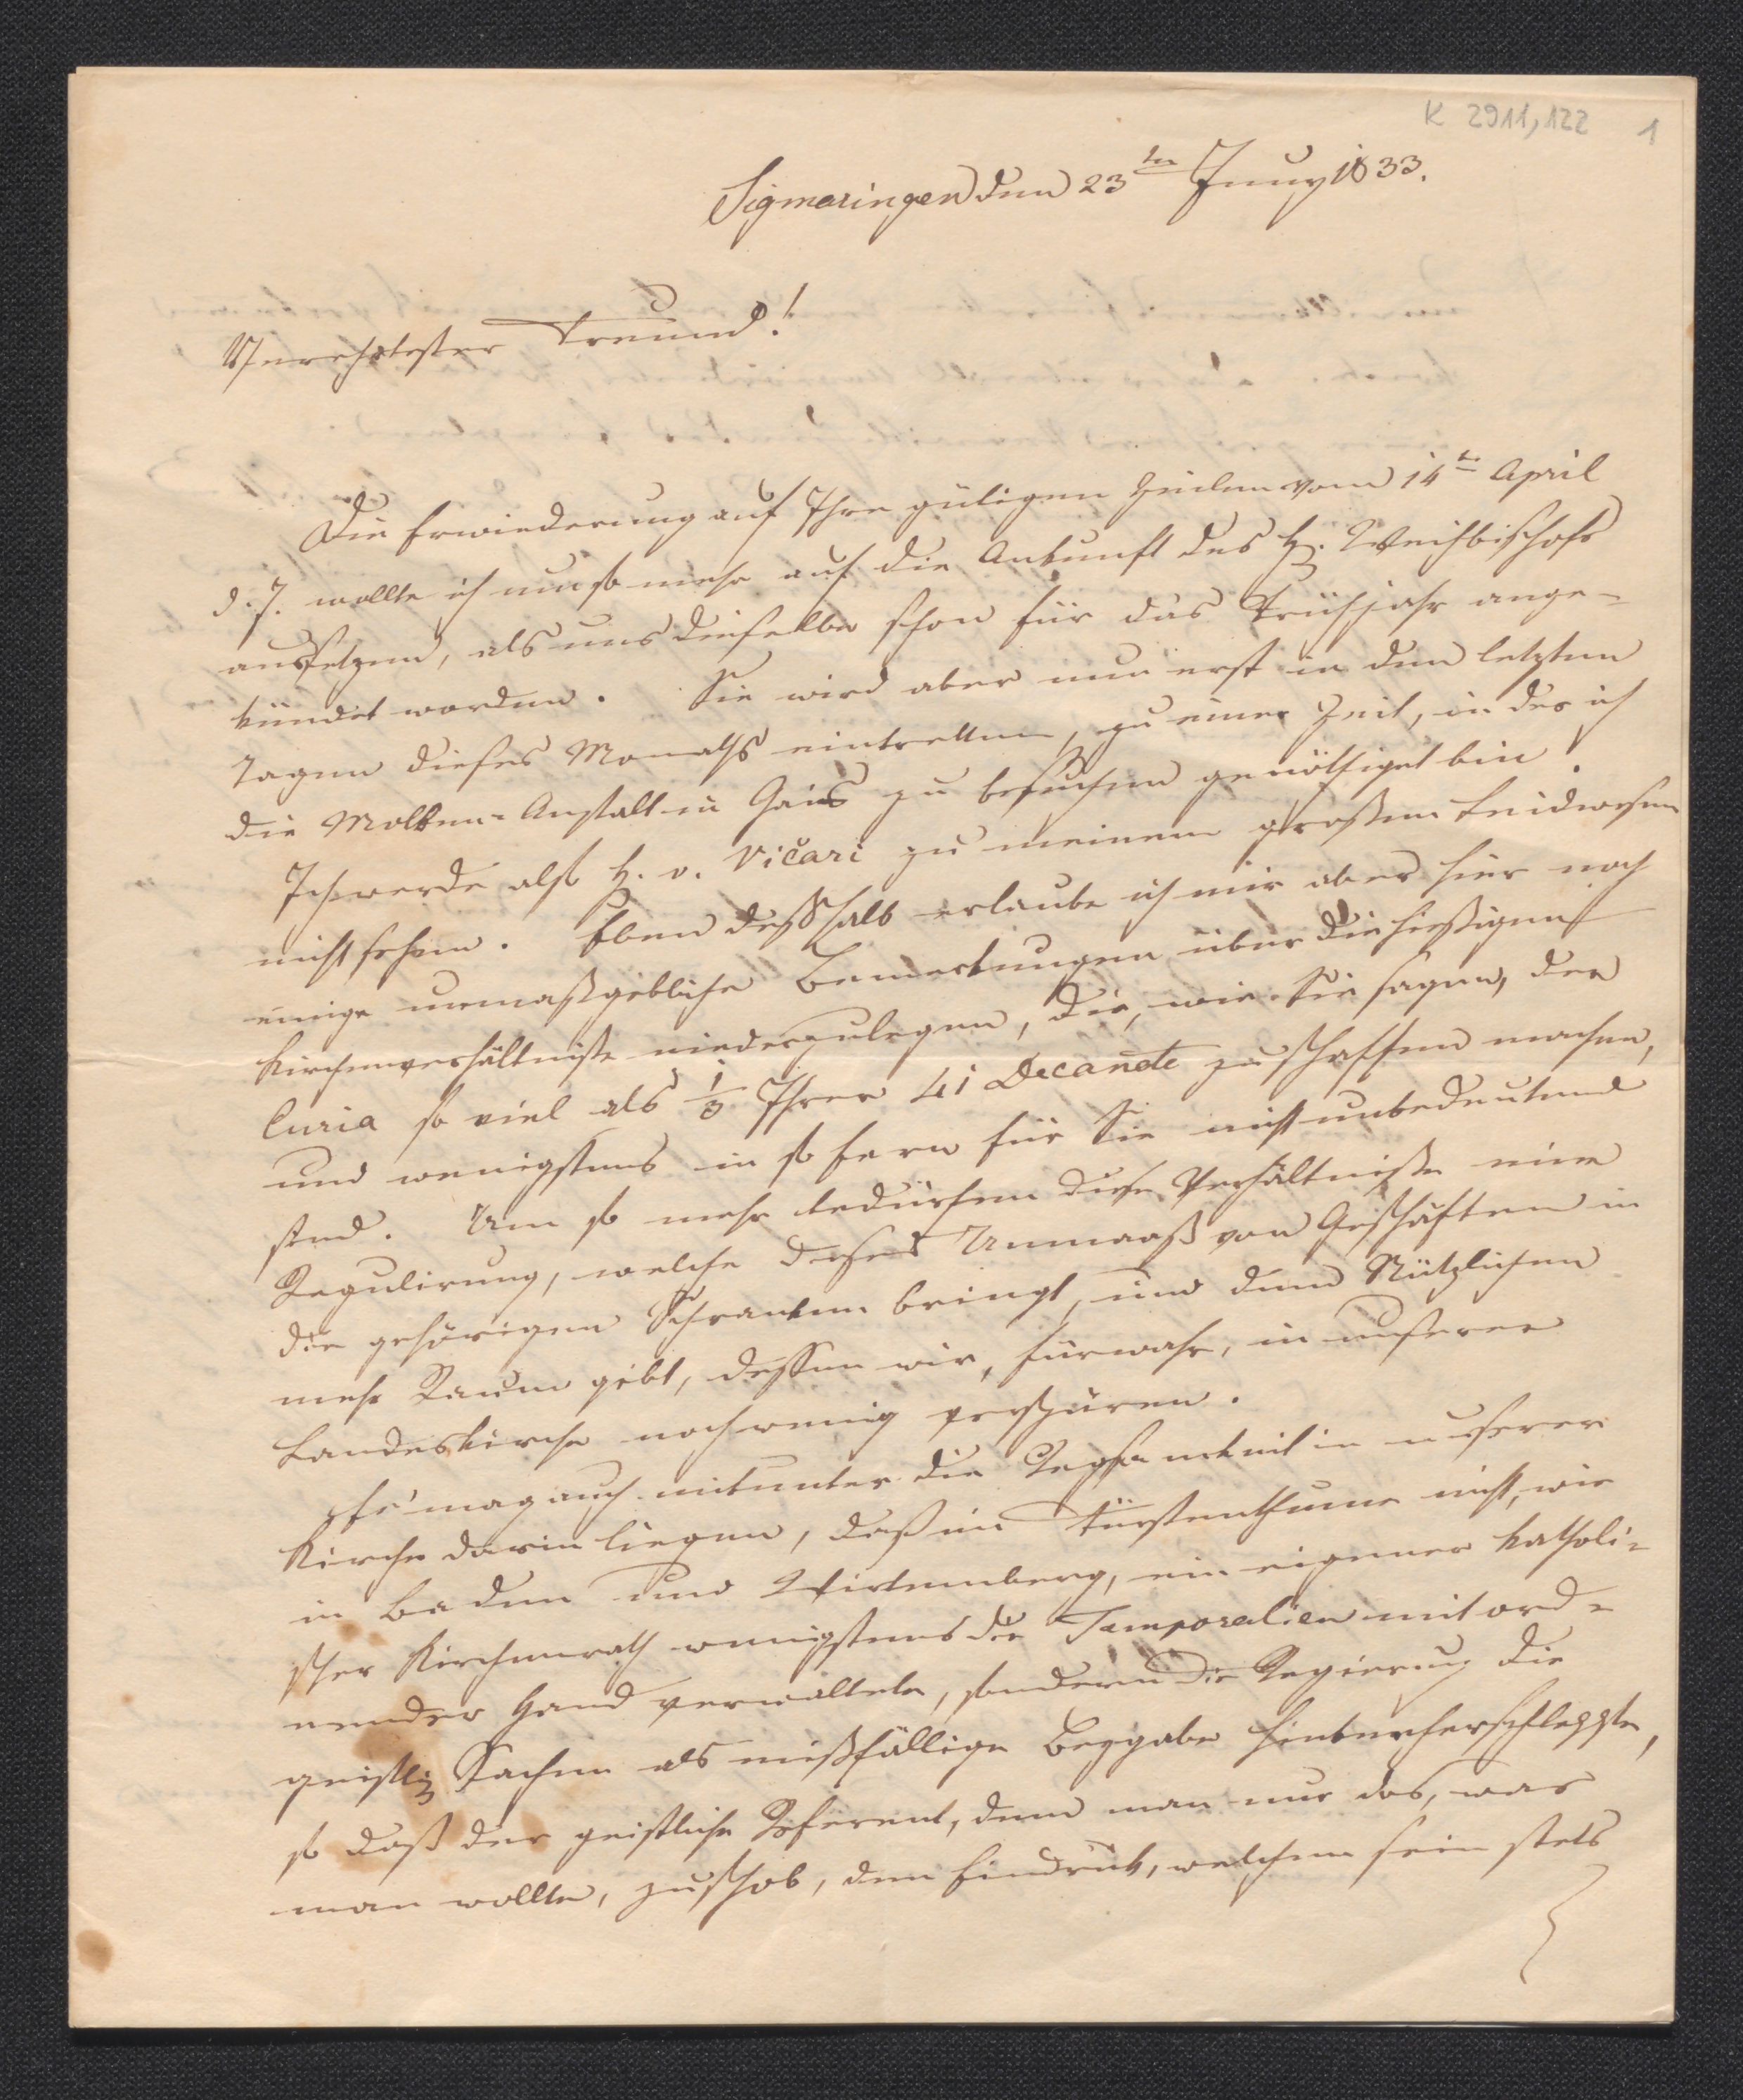 K 2911,122 1
Sigmaringen den 23ten Juny 1833.
Verehrtester Freund!
Die Erwiederung auf Ihre gütigen Zeilen vom 14ten April
d. J. wollte ich um so mehr auf die Ankunft des H. Weihbischofs
aussetzen, als uns dieselbe schon für das Frühjahr ange-
kündet worden. Sie wird aber nun erst in den letzten
Tagen dieses Monaths eintretten, zu einer Zeit, in der ich
die Molken-Anstalt in Gais zu besuchen genöthiget bin.
Ich werde also H. v. Vicari zu meinem großen Leidwesen
nicht sehen. Eben deßhalb erlaube ich mir aber hier noch
einige unmaßgebliche Bemerkungen über die hießigen
Kirchenverhältniße niederzulegen, die, wie Sie sagen, der
Curia so viel als 1/3 Ihrer 41 Decanate zu schaffen machen,
und wenigstens in so fern für Sie nicht unbedeutend
sind. Um so mehr bedürfen diese Verhältniße eine
Regulirung, welche dieses Unmaaß von Geschäften in
die gehörigen Schranken bringt, und dem Nützlichen
mehr Raum gibt, dessen wir, fürwahr, in unserer
Landeskirche noch wenig verspüren.
Es mag auch mitunter die in unserer
Kirche darin liegen, daß im Fürstenthume nicht, wie
in Baden und Wirtemberg, ein eigener katholi-
scher Kirchenrath wenigstens die Temporalien mit ord-
nender Hand verwaltete, sondern die Regierung die
geistl. Sachen als mißfällige Beygabe hinterherschleppte,
so daß der geistliche Referent, dem man nur das, was
man wollte, zuschob, den Eindruck, welchem sein stets